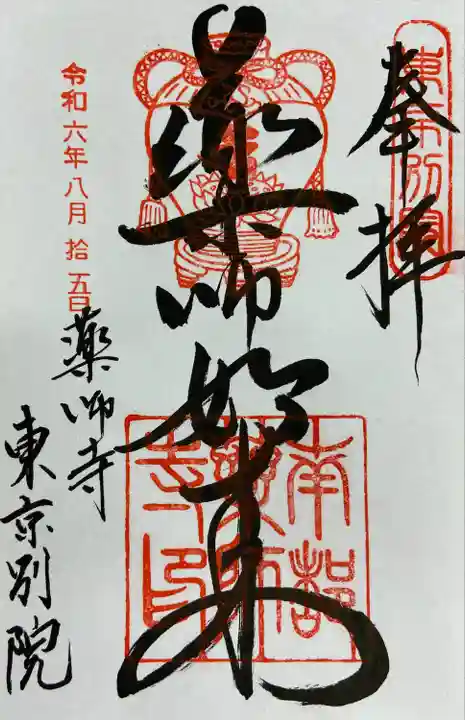 奉拝
東京別院
薬師如来
南都
薬師
寺印
令和六年八月拾五日
薬師寺
東京別院